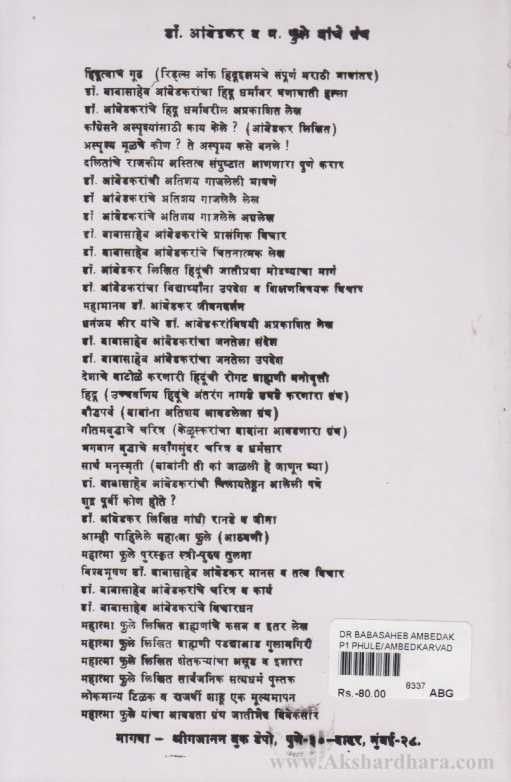 डॉ. आंबेडकर व म. फुले यांचे ग्रंथ
हिंदुत्वाचं गूढ (रिडल्स ऑफ हिंदूइझमचे संपूर्ण मराठी भाषांतर)
डॉ. बाबासाहेब आंबेडकरांचा हिंदू धर्मावर घणाघाती हल्ला
डॉ. आंबेडकरांचे हिंदू धर्मावरील अप्रकाशित लेख
काँग्रेसने अस्पृश्यांसाठी काय केले ? (आंबेडकर लिखित)
अस्पृश्य मूळचे कोण ? ते अस्पृश्य कसे बनले !
दलितांचे राजकीय अस्तित्व संपुष्टात आणणारा पुणे करार
डॉ. आंबेडकरांची अतिशय गाजलेली भाषणे
डॉ आंबेडकरांचे अतिशय गाजलेले लेख
डॉ आंबेडकरांचे अतिशय गाजलेले अग्रलेख
डॉ. बाबासाहेब आंबेडकरांचे प्रासंगिक विचार
डॉ. बाबासाहेब आंबेडकरांचे चिंतनात्मक लेख
डॉ. आंबेडकर लिखित हिंदूंची जातीप्रथा मोडण्याचा मार्ग
डॉ. आंबेडकरांचा विद्यार्थ्यांना उपदेश व शिक्षणविषयक विचार
महामानव डॉ. आंबेडकर जीवनदर्शन
धनंजय कीर यांचे डॉ. आंबेडकरांविषयी अप्रकाशित लेख
डॉ. बाबासाहेब आंबेडकरांचा जनतेला संदेश
डॉ. बाबासाहेब आंबेडकरांचा जनतेला उपदेश
देशाचे वाटोळे करणारी हिंदूंची रोगट ब्राह्मणी मनोवृत्ती
हिंदू (उच्चवर्णिय हिंदूंचे अंतरंग नागडे उघडे करणारा ग्रंथ)
बौद्धपर्व (बाबांना अतिशय आवडलेला ग्रंथ)
गौतमबुद्धाचे चरित्र (केळूस्करांचा बाबांना आवडणारा ग्रंथ)
भगवान बुद्धाचे सर्वांगसुंदर चरित्र व धर्मसार
सार्थ मनुस्मृती (बाबांनी ती कां जाळली हे जाणून घ्या)
डॉ. बाबासाहेब आंबेडकरांची विलायतेहून आलेली पत्रे
शुद्र पूर्वी कोण होते ?
डॉ. आंबेडकर लिखित गांधी रानडे व जीना
आम्ही पाहिलेले महात्मा फुले (आठवणी)
महात्मा फुले पुरस्कृत स्त्री-पुरुष तुलना
विश्वभूषण डॉ. बाबासाहेब आंबेडकर मानस व तत्व विचार
डॉ. बाबासाहेब आंबेडकरांचे चरित्र व कार्य
डॉ. बाबासाहेब आंबेडकरांचे विचारधन
महात्मा फुले लिखित ब्राह्मणांचे कसब व इतर लेख
महात्मा फुले लिखित ब्राह्मणी पडद्याआड गुलामगिरी
महात्मा फुले लिखित शेतकऱ्यांचा असूड व इशारा
महात्मा फुले लिखित सार्वजनिक सत्यधर्म पुस्तक
लोकमान्य टिळक व राजर्षी शाहू एक मूल्यमापन
महात्मा फुले यांचा आवडता ग्रंथ जातीभेद विवेकसार
मागवा – श्रीगजानन बुक डेपो, पुणे-३०-दादर, मुंबई-२८.
DR BABASAHEB AMBEDAK
P1 PHULE/AMBEDKARVAD
8337
Rs.-80.00 ABG
www.Akshardhara.com